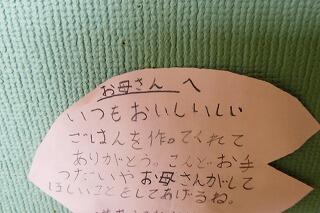 お母さん へ
いつもおいしいしい
ごはんを作ってくれて
ありがとう。こんどお手
つだいやお母さんがして
ほしいことをしてあげるね。